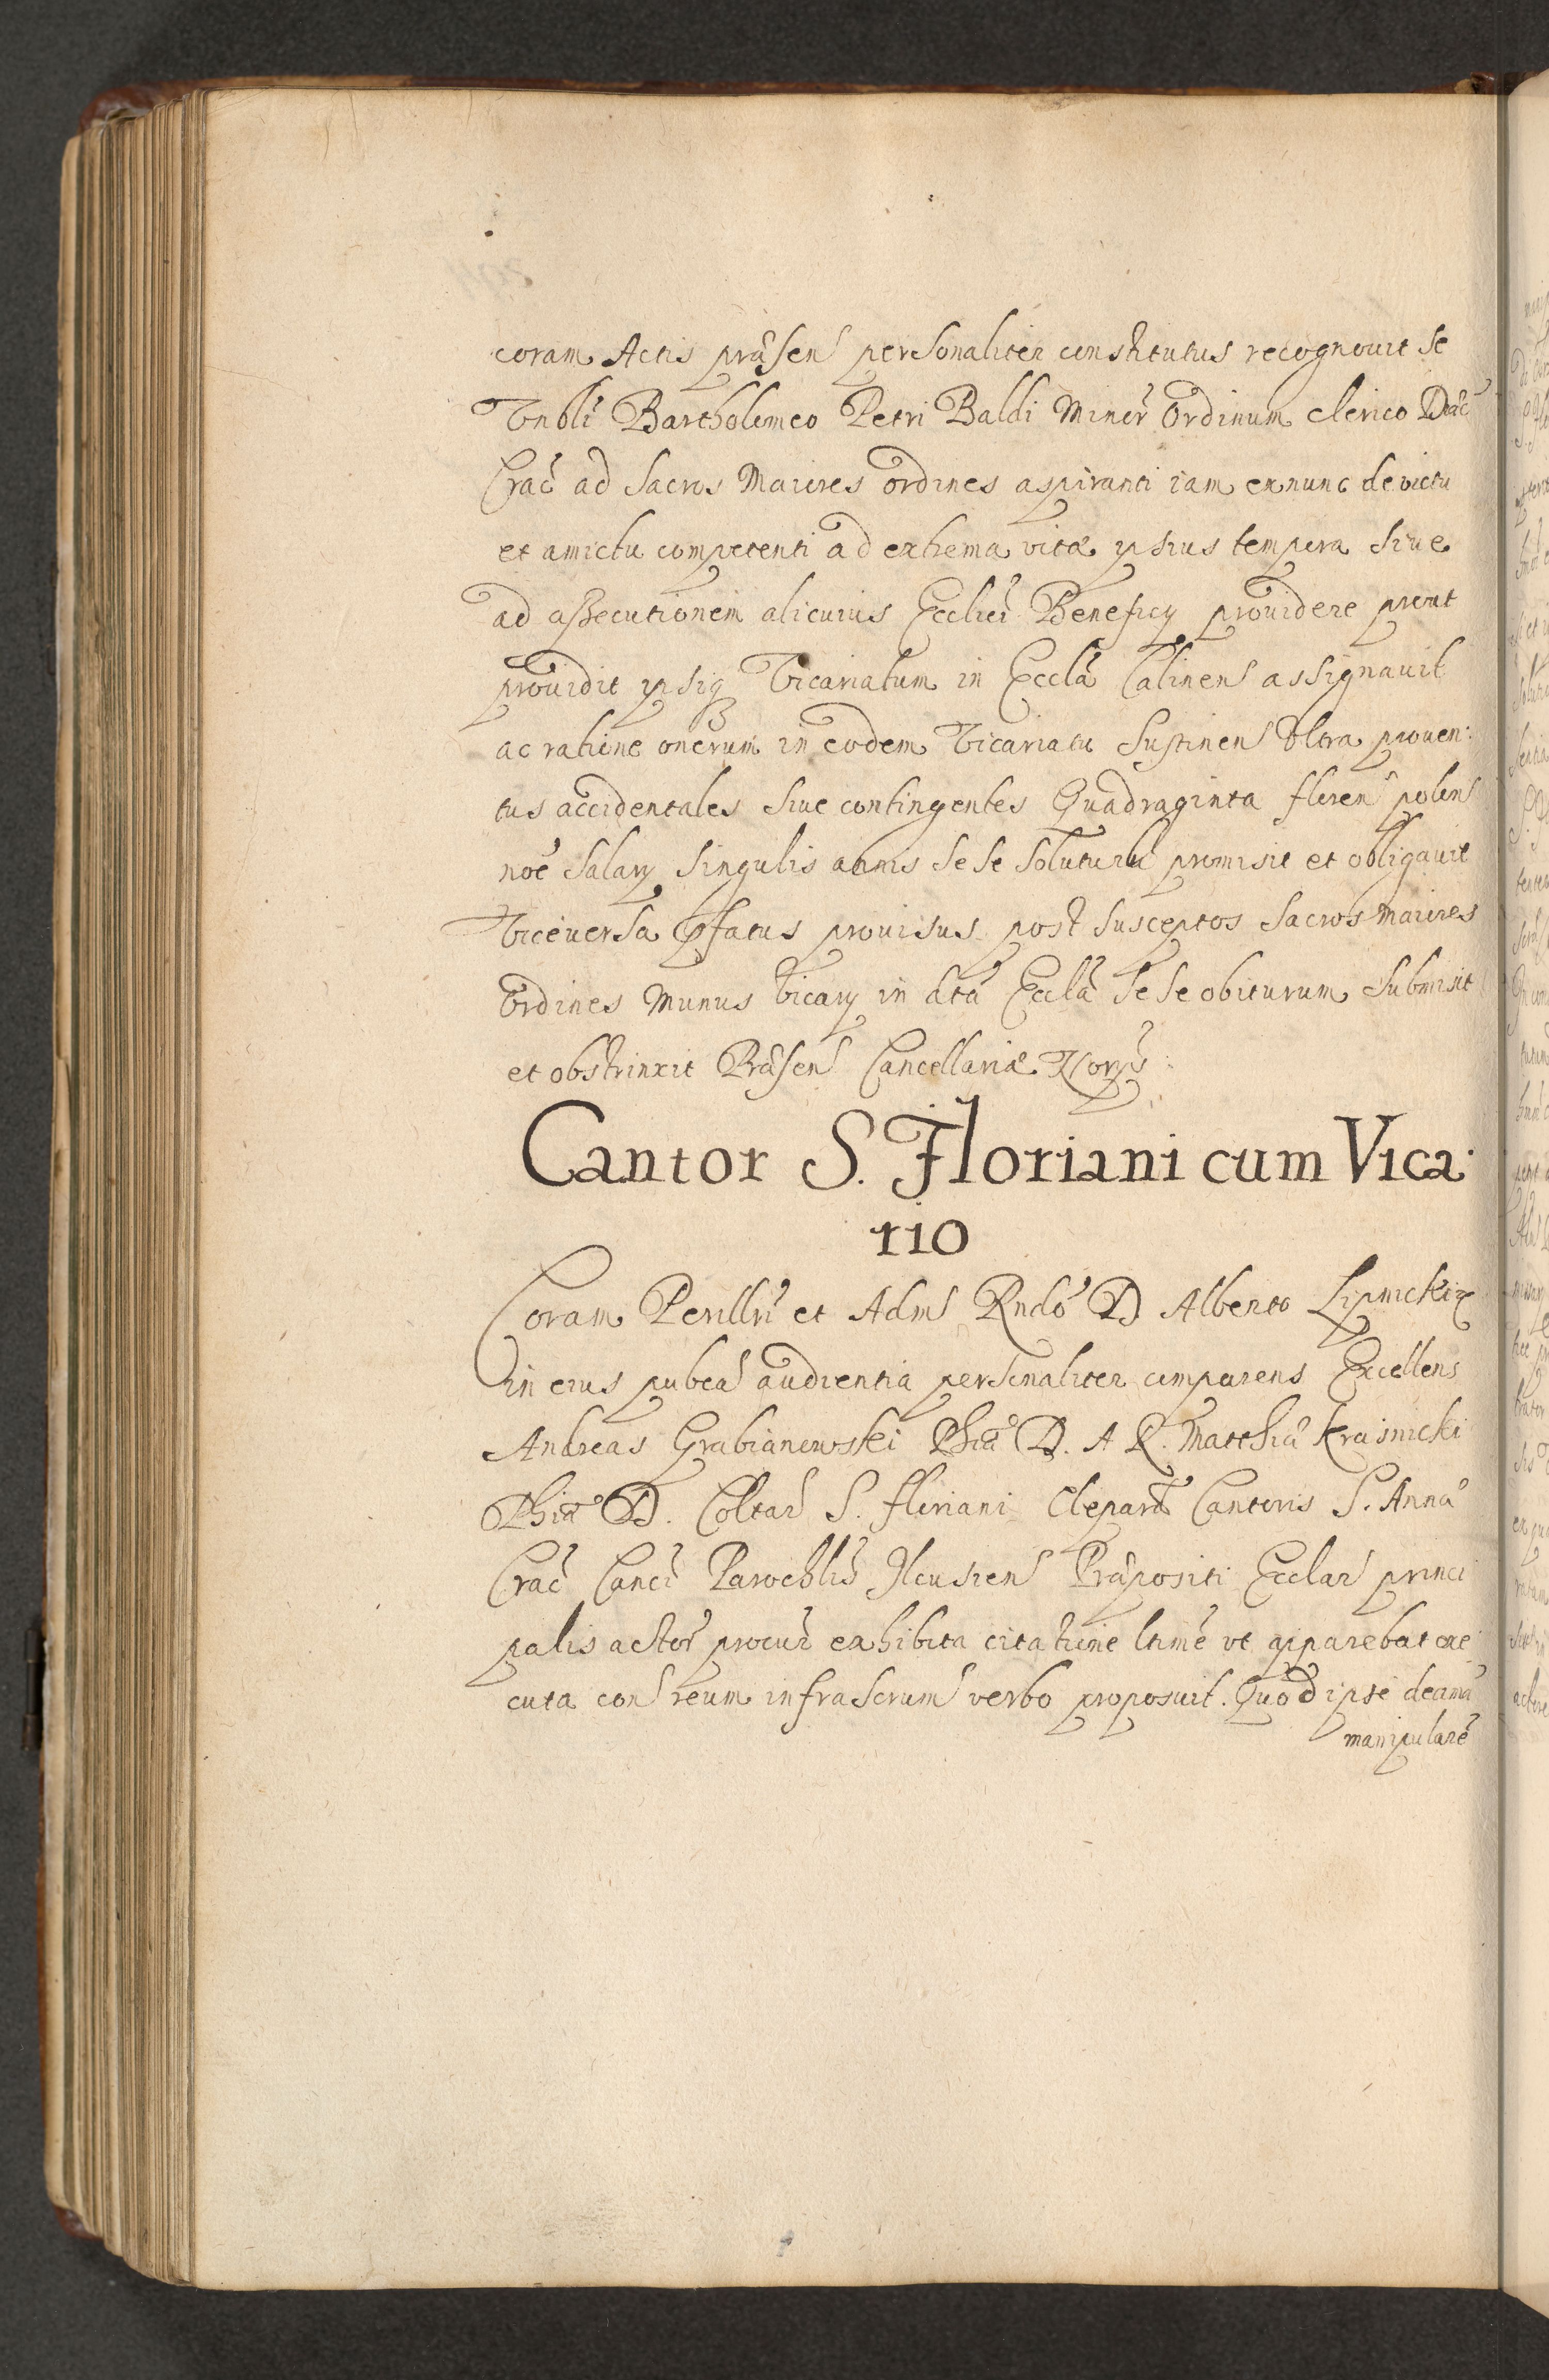 coram Actis præsen personaliter constitutus recognouit se
Vnbli Bartholomeo Petri Baldi Minor Ordinum clerico Diæc
Crac ad Sacros Maiores ordines aspiranti iam exnunc de victu
et amictu competenti ad extrema vitæ ipsius tempora siue
ad assecutionem alicuius Ecclici Beneficij prouidere prout
prouidit ipsiq Vicariatum in Eccla Calinen assignauit
ac ratione onerum in eodem Vicariatu Sustinen Vltra prouen:
tus accidentales siue contingentes Quadraginta floren polon
noe Salarij singulis annis se se soluturu promisit et obligauit
Viceuersa pfatus prouisus post susceptos sacros maiores
Ordines Munus Vicarij in dta Eccla se se obiturum submisit
et obstrinxit Præsen Cancellariæ
Cantor S. Floriani cum Vica:
rio
Coram Perillri et Adm Rndo D Alberto Lipnicki
in eius pubca audientia personaliter comparens Excellens
Andreas Grabianowski Phiæ D. A R. Matthiæ Krasnicki
Phiæ D. Coltæ S. Floriani Clepard Cantoris S. Annæ
Crac Canci Parochlis Ilcusien Præpositi Ecclar princi
palis actor procur exhibita citatione ltime vt apparebat exe
cuta con reum infrascrum verbo proposuit. Quod ipse decimã
manipulare